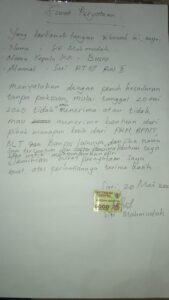 Surat Pernyataan
Yang bertanda tangan dibawah ini, saya:
Nama : Siti Mahmudah
Nama Kepala KK :
Alamat : Sari RT 05 RW
menyatakan dengan penuh kesadaran
tanpa paksaan, mulai tanggal 20 mei
2020 tidak menerima atau tidak
mau menerima bantuan dari
pihak manapun baik dari PKH, BPNT,
BLT dan Bansos lainnya, dan jika nama
saya
Demikian surat pernyataan saya
buat atas perhatiannya terima kasih
Sari, 20 Mei
Siti Mahmudah